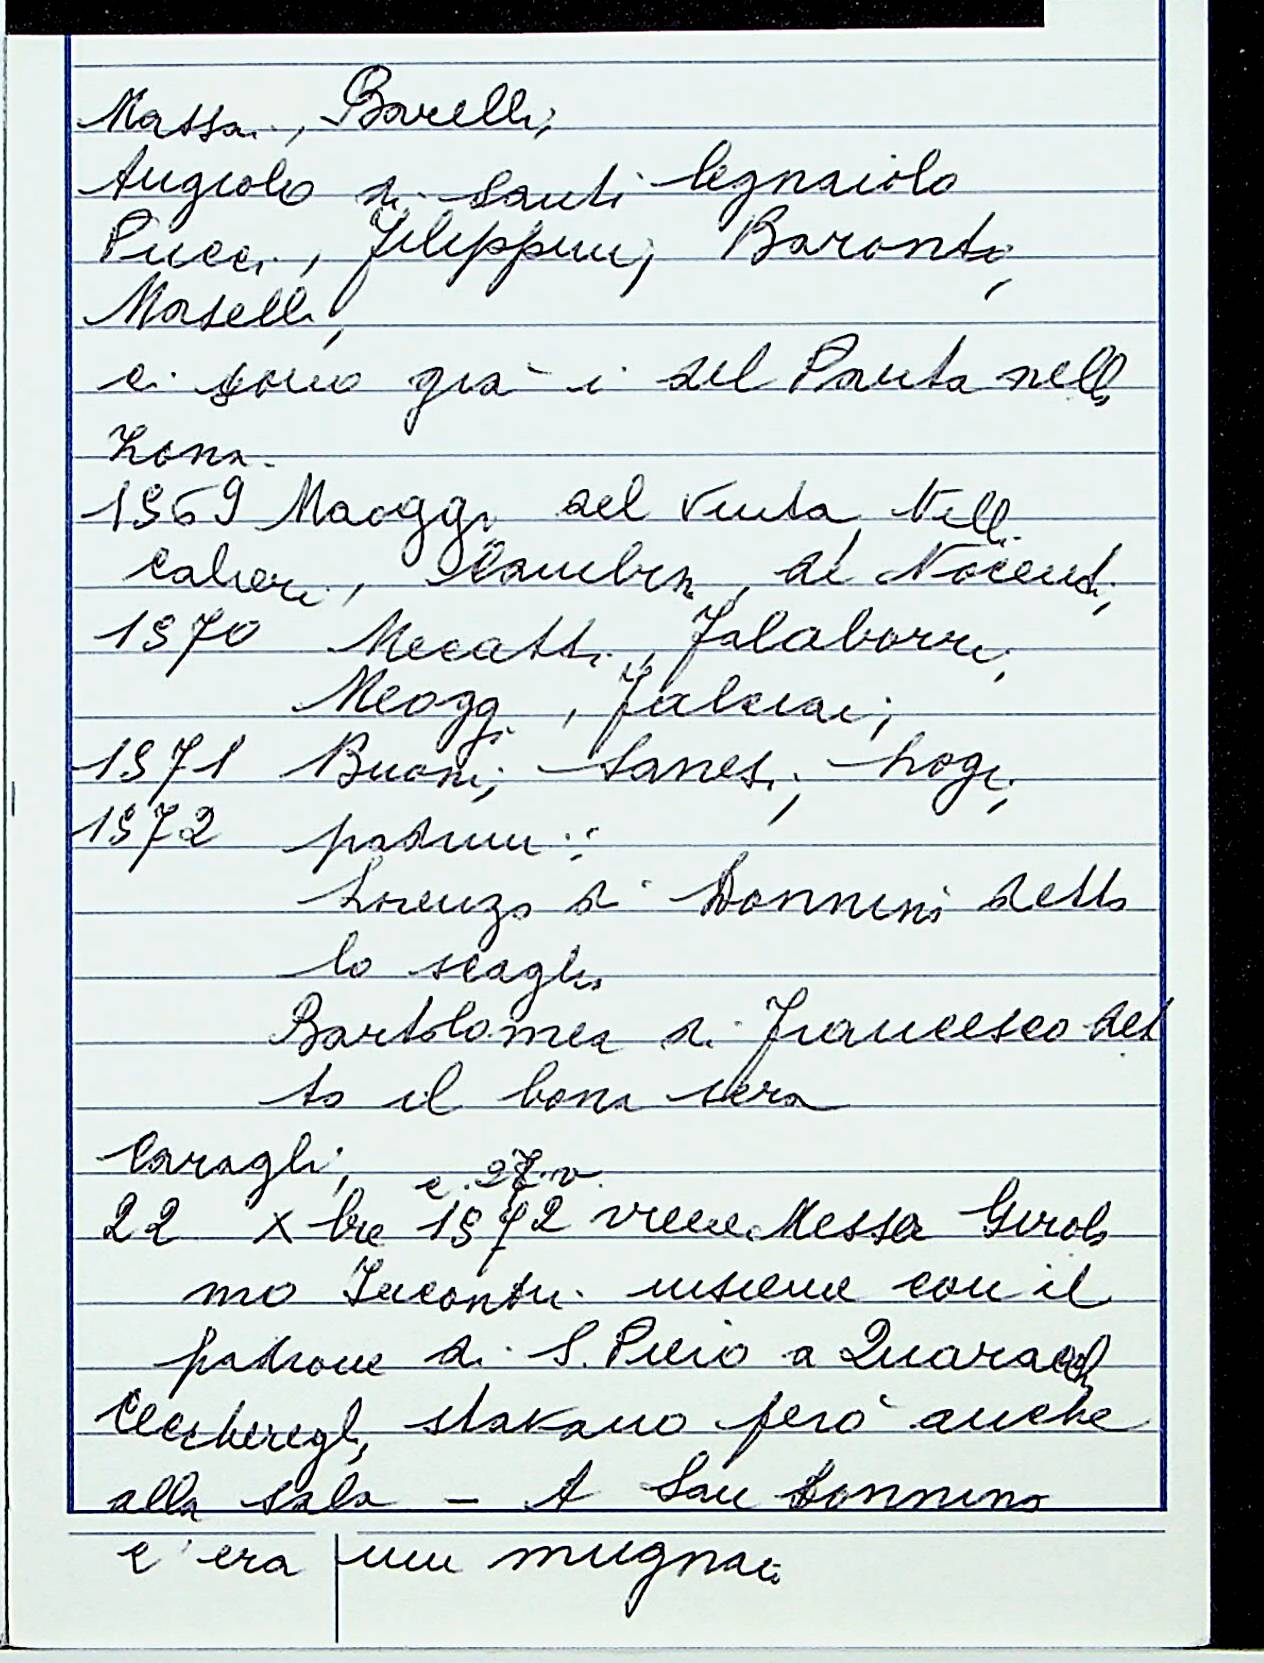 Massai, Borelli,
Angiolo di Santi legnaiolo
Pucci, Filippini, Baronti,
Maselli,
ci sono già i del Panta nella
zona.
1569 Maoggi del Vinta Nelli
Calieri, Ciambini, de Nocenti,
1570 Mecatti, Falaborri,
Meoggi, Falciai,
1571 Buoni, Sanesi, Logi,
1572 padrini:
Lorenzo di Donnini detto
lo scaglia
Bartolomea di Francesco det
to il bona sera
Caragli, c. 27. v.
22 Xbre 1572 viene Messer Girola
mo Iacontri insieme con il
padrone di S. Piero a Quaracchi
Ceccheregli, stavano però anche
alla Sala - A San Donnino
c'era un mugnaio